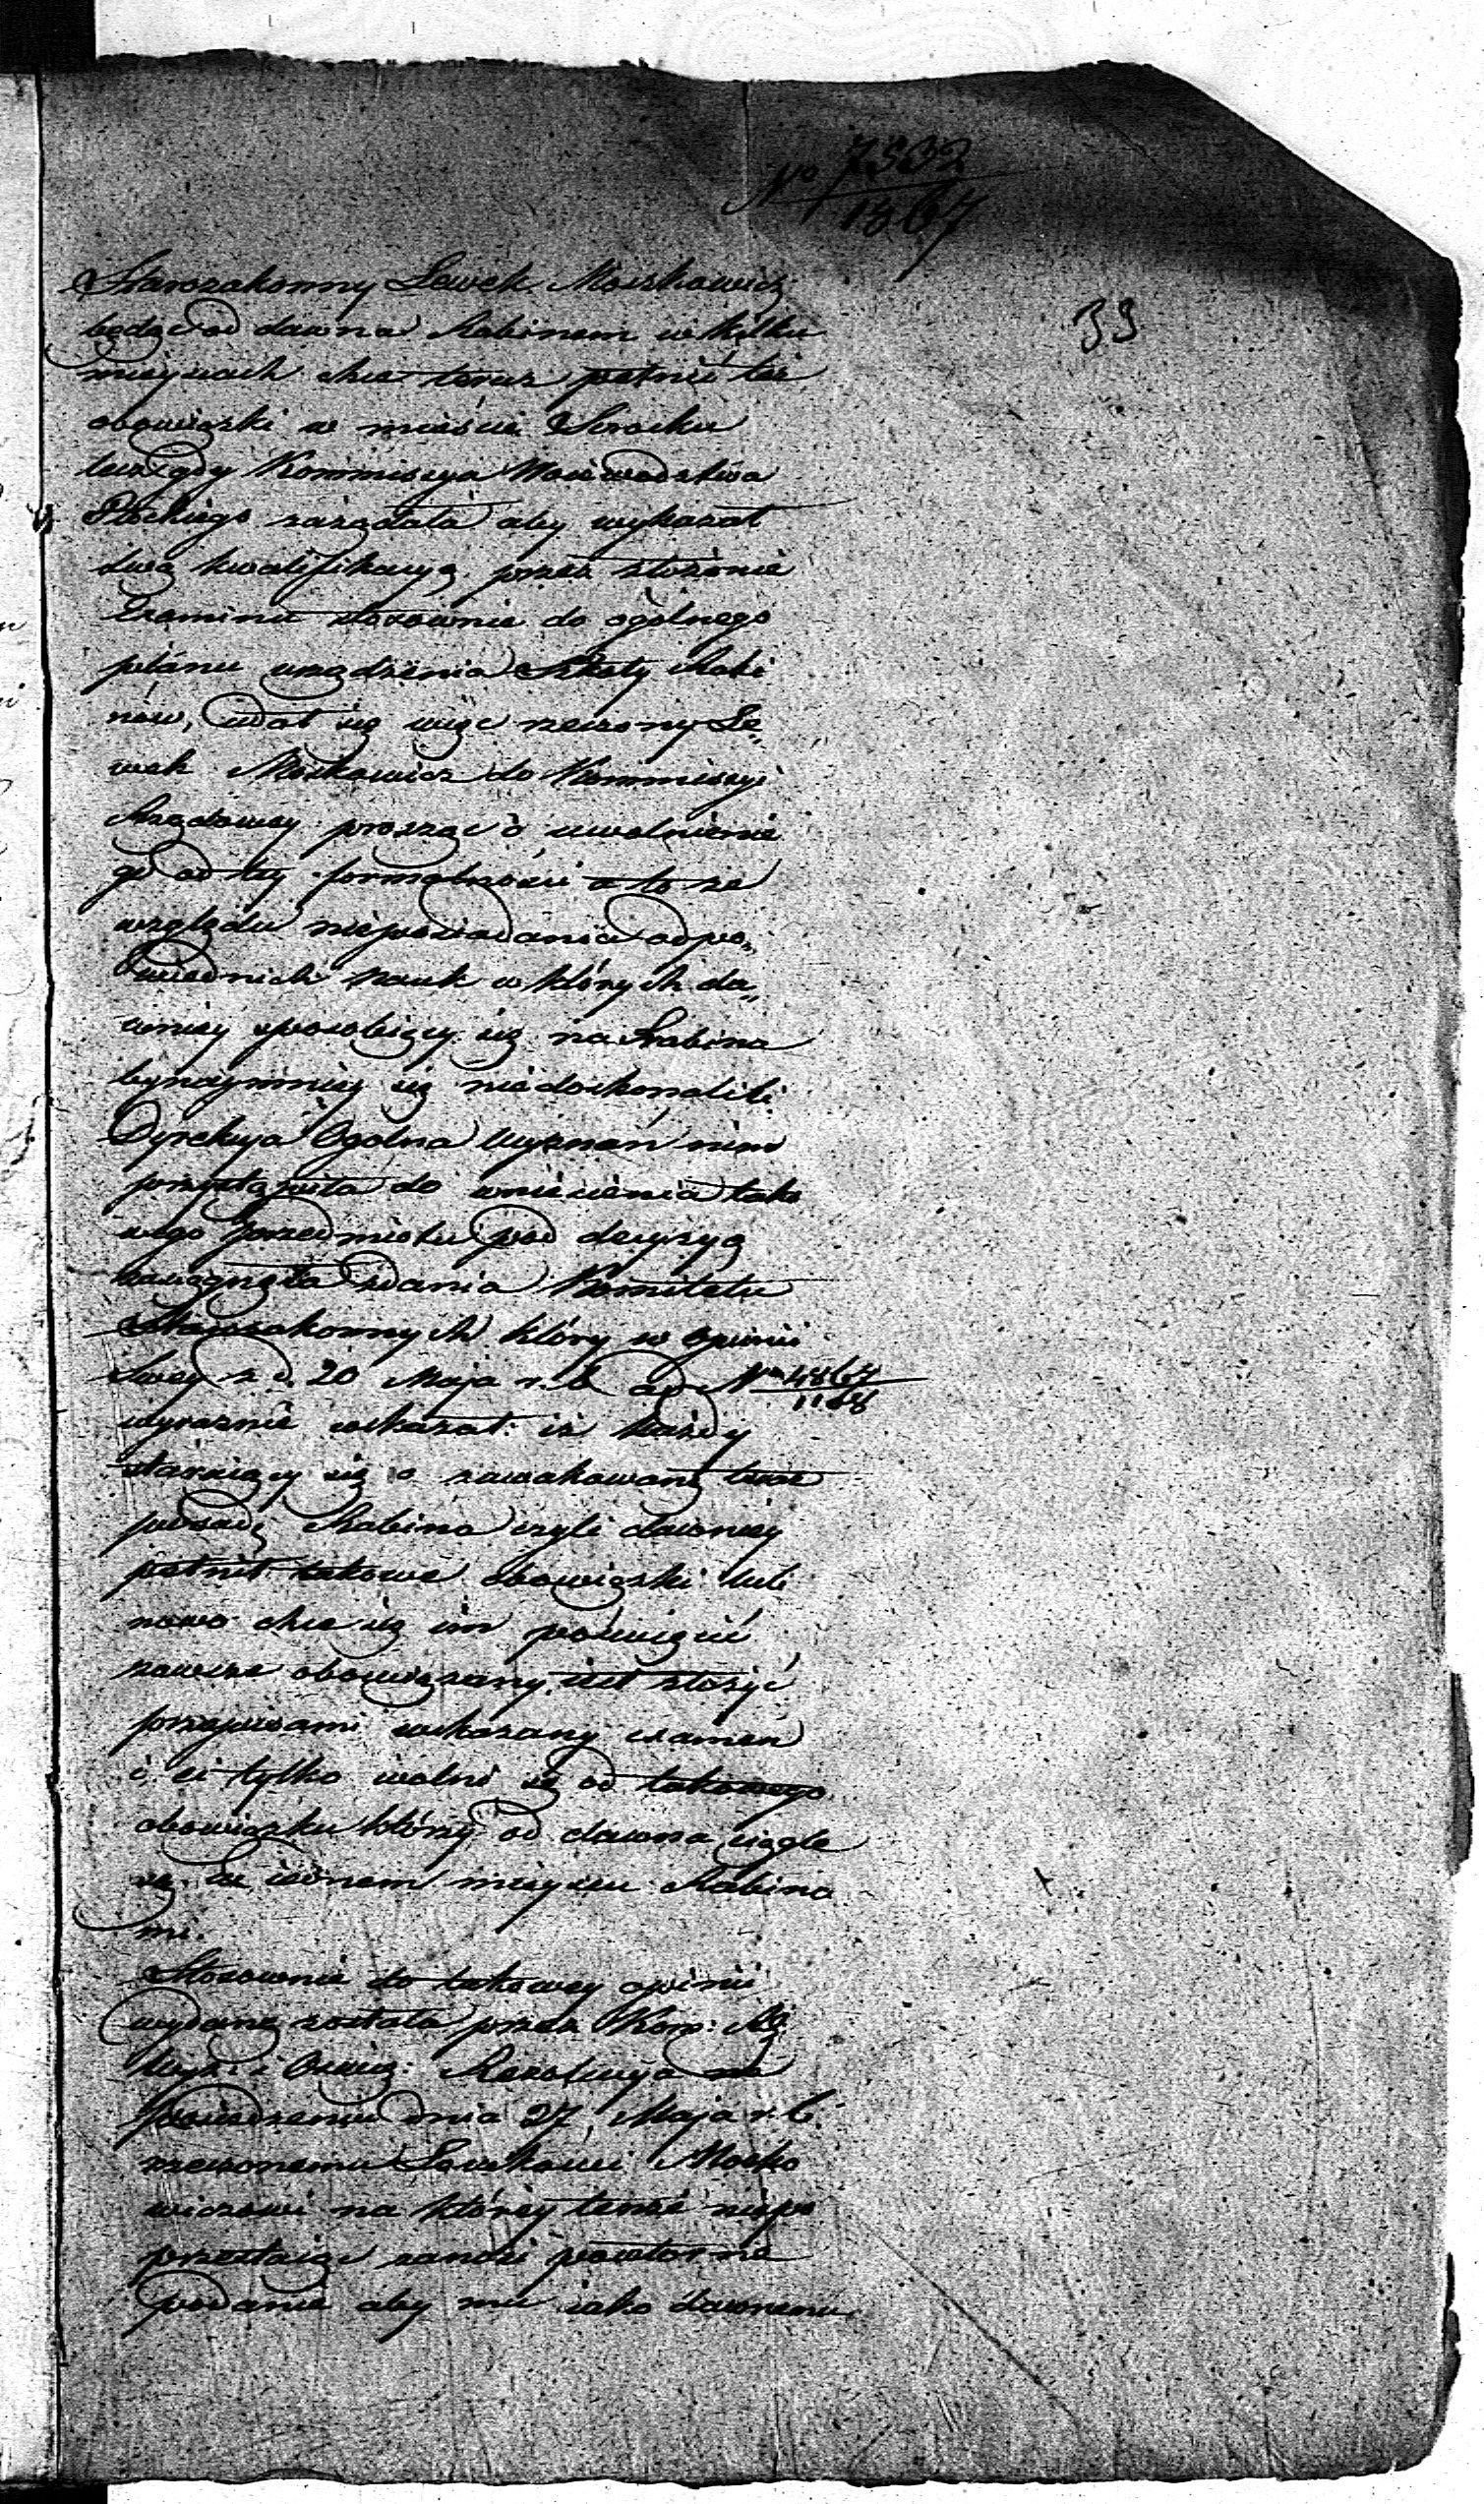 No 7532
1867
33
Starozakonny Lewek Moszkowicz
będąc od dawna Rabinem w kilku
mieyscach chce teraz pełnić też
obowiązki w mieście Serocku
lecz gdy Kommissya Woiewodztwa
Płockiego zażądała aby wykazał
swą kwalifikacyą przez złożenie
Examinu stosownie do ogólnego
planu urządzenia Szkoły Rabi
nów, udał się więc rzeczony Le„
wek Moszkowicz do Kommissyi
Rządowey prosząc o uwolnienie
go od tey formalności a to ze
względu nieposiadania odpo„
wiednich nauk w których da„
wniey sposobiący się na Rabina
bynaymniey się niedoskonalili
Dyrekcya Ogolna Wyznań nim
przystąpiła do wniesienia tako
wego przedmiotu pod decyzyą
zaciągnęła zdania Komitetu
Starozakonnych który w opinii
swey z d. 20 Maja r. b. ad No 4867
1168
wyraznie wskazał iż każdy
staraiący się o zawakowaną teraz
posadę Rabina czyli dawniey
pełnił takowe obowiązki lub
nowo chce się im poświęcić
zawsze obowiązany iest złożyć
przepisami wskazany examen
i ci tylko wolni są od takowego
obowiązku którzy od dawna ciągle
są w iednem mieyscu Rabina
mi.
Stosownie do takowey opinii
wydaną została przez Kom: Rz:
Wyz: i Oświe: Rezolucya na
posiedzeniu dnia 27 Maja r. b.
rzeczonemu Lewkowi Moszko
wiczowi na którey tenże niepo
przestaiąc zanosi powtorne
podanie aby mu iako dawnemu